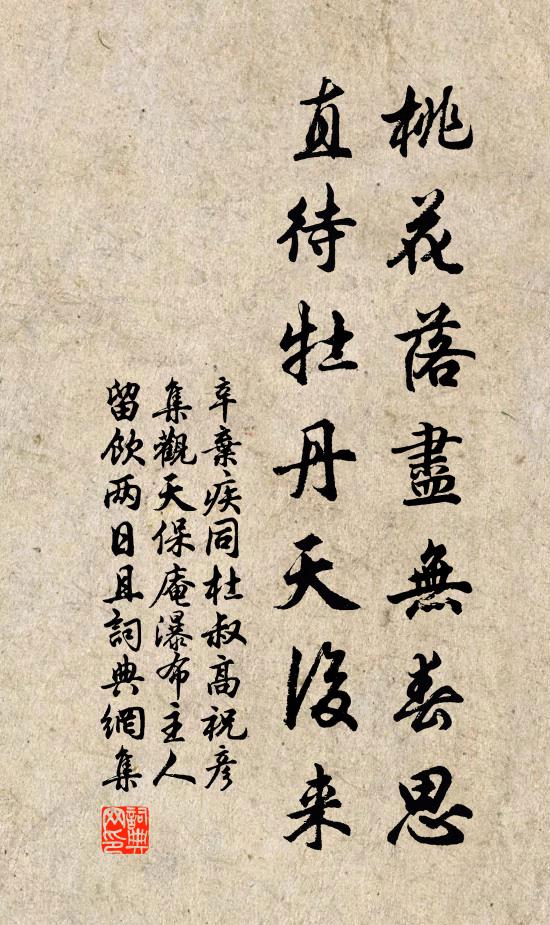 桃花落盡無春思
直待牡丹天後来
辛棄疾同杜叔高祝彦
集觀天保庵瀑布主人
留飲两日且詞典網集
詞典
网印